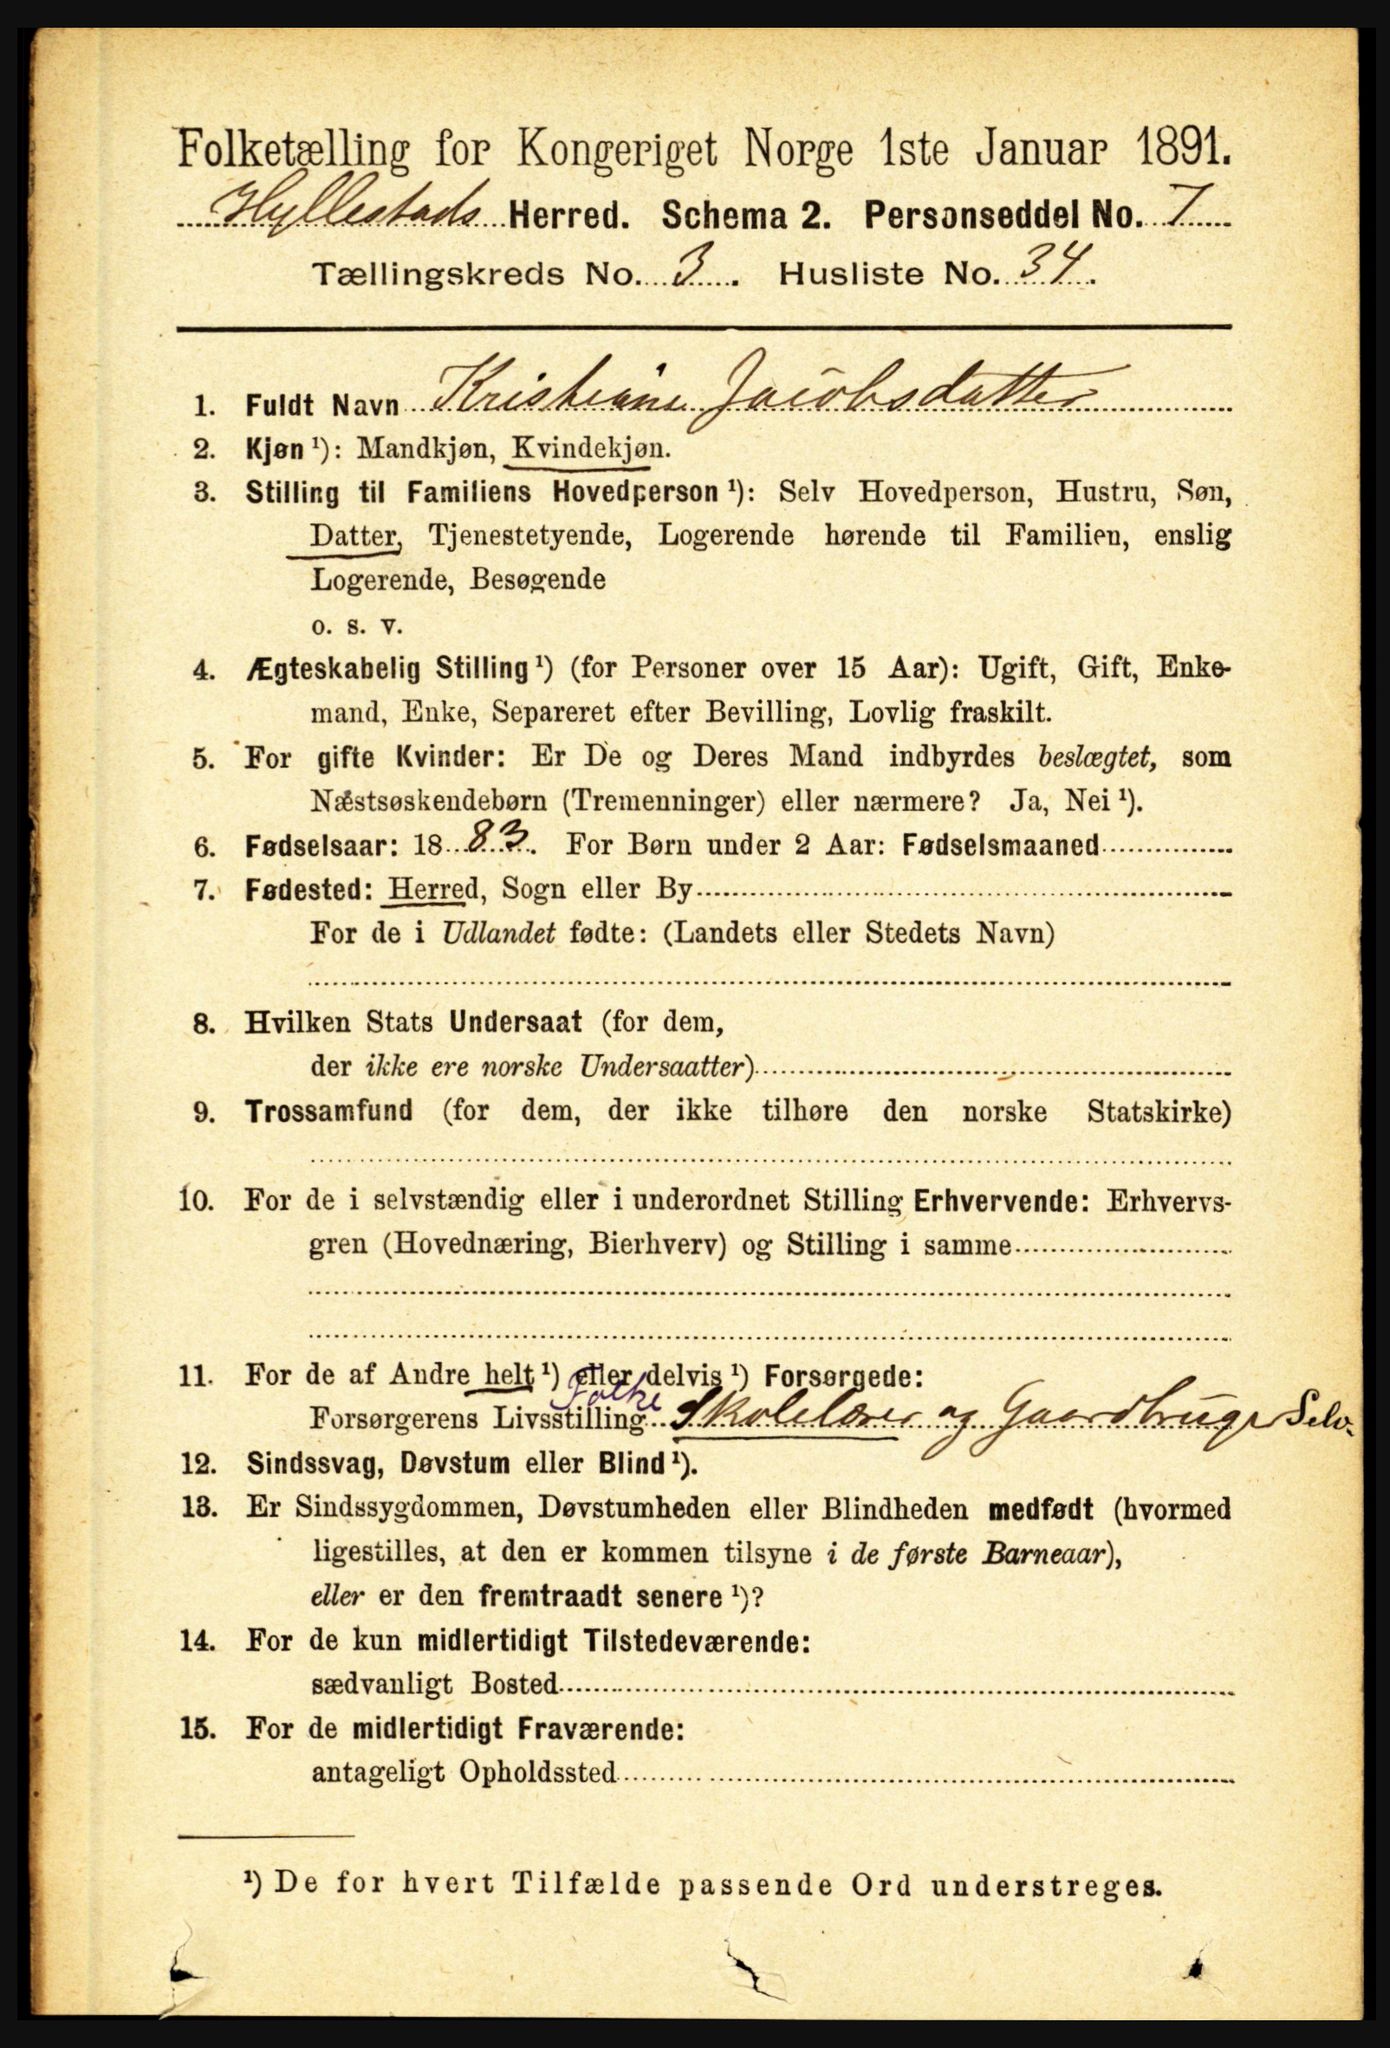 Folketælling for Kongeriget Norge 1ste Januar 1891.
Hyllestads Herred. Schema 2. Personseddel No. 7
Tællingskreds No. 3. Husliste No. 34.
1. Fuldt Navn Kristiane Jacobsdatter
2. Kjøn ¹): Mandkjøn, Kvindekjøn.
3. Stilling til Familiens Hovedperson ¹): Selv Hovedperson, Hustru, Søn,
Datter, Tjenestetyende, Logerende hørende til Familien, enslig
Logerende, Besøgende
o. s. v.
4. Ægteskabelig Stilling ¹) (for Personer over 15 Aar): Ugift, Gift, Enke-
mand, Enke, Separeret efter Bevilling, Lovlig fraskilt.
5. For gifte Kvinder: Er De og Deres Mand indbyrdes beslægtet, som
Næstsøskendebørn (Tremenninger) eller nærmere? Ja, Nei ¹).
6. Fødselsaar: 1883. For Børn under 2 Aar: Fødselsmaaned
7. Fødested: Herred, Sogn eller By
For de i Udlandet fødte: (Landets eller Stedets Navn)
8. Hvilken Stats Undersaat (for dem,
der ikke ere norske Undersaatter)
9. Trossamfund (for dem, der ikke tilhøre den norske Statskirke)
10. For de i selvstændig eller i underordnet Stilling Erhvervende: Erhvervs-
gren (Hovednæring, Bierhverv) og Stilling i samme
11. For de af Andre helt ¹) eller delvis ¹) Forsørgede:
Folke
Forsørgerens Livsstilling Skolelærer og Gaardbruger Selv.
12. Sindssvag, Døvstum eller Blind ¹).
13. Er Sindssygdommen, Døvstumheden eller Blindheden medfødt (hvormed
ligestilles, at den er kommen tilsyne i de første Barneaar),
eller er den fremtraadt senere ¹)?
14. For de kun midlertidigt Tilstedeværende:
sædvanligt Bosted
15. For de midlertidigt Fraværende:
antageligt Opholdssted
¹) De for hvert Tilfælde passende Ord understreges.